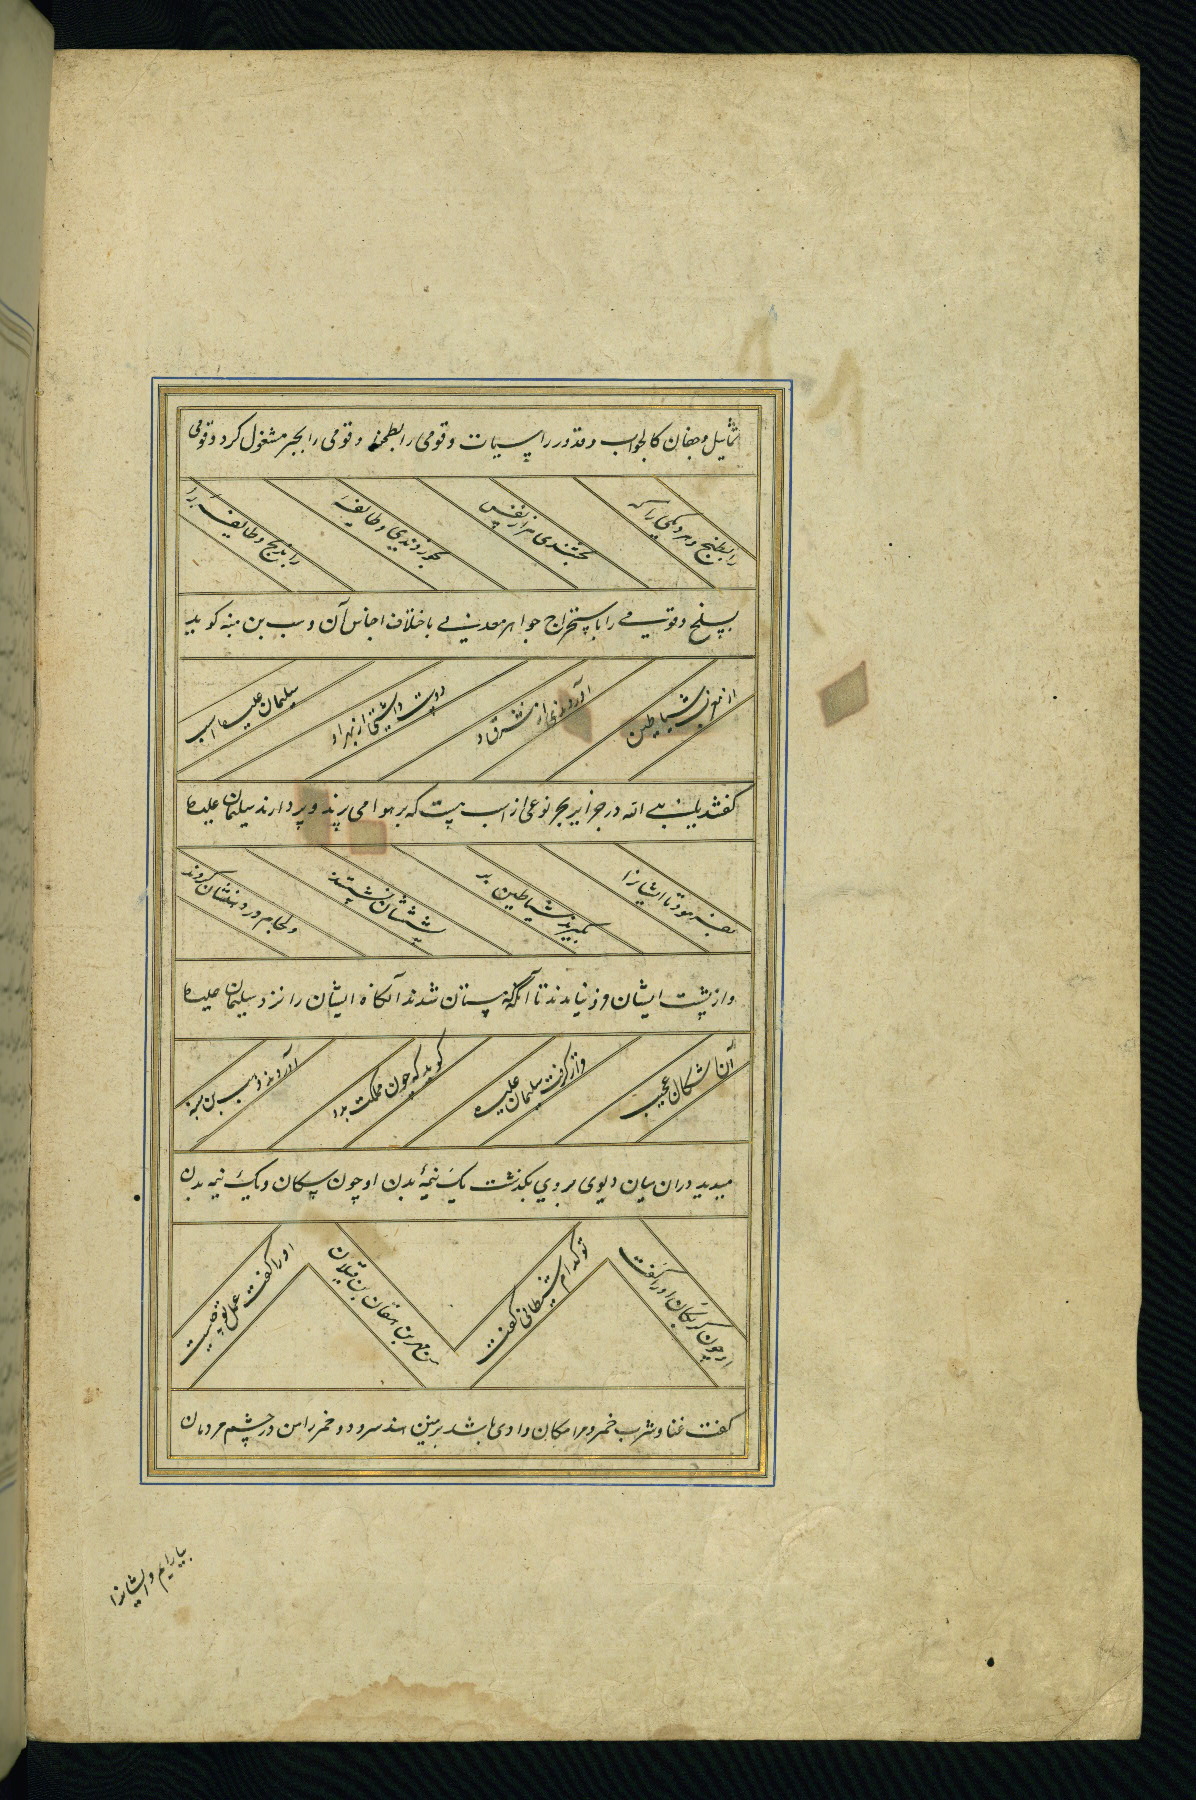 تماثیل و جفان کالجواب و قدور راسیات و قومی را بطحن و قومی را بحبز مشغول کرد و قومی
را بطبخ و هر دیکی را که
بجتندی هزار نفس
بخوردندی و طایفه
را بذبح و طایفه را
بسلخ و قومی را باستخراج جواهر معدنی باختلاف اجناس آن وهب بن منبه کوید
شیاطین
آوردندی از
سلیمان علیه اسب
کفتند یا نبی الله در جزایر بحر نوعی از اسب هست که بر هوا می پرند و پر دارند سلیمان علیه
بفرمود تا ایشانرا
بگیرند شیاطین بر
پشتشان نشستند
و لجام در دهنشان کردند
و از پشت ایشان فرو نیامدند تا آنکه مستان شدند آنکاه ایشان را نزد سلیمان علیه
آن اشکال عجیب
سلیمان علیه
کوید که چون مملکت بدا
آوردند وهب بن منبه
میدید در ان میان دیوی بروی بکذشت یک نیمهٔ بدن او چون سکان و یک نیمه بدن
او چون کربکان او را کفت
تو کدام شیطانی کفت
من مهر بن هفان بن فیلان
او را کفت عمل تو چیست
کفت غنا و شرب خمر و مرا مکان وادی باشد بر من سرود و خمر را من در چشم مردمان
بیارایم و ایشانرا